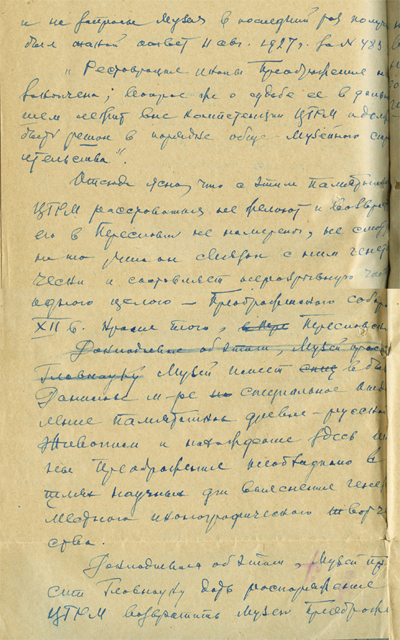 и на вопросы Музея в последний раз полу
был такой ответ 11 авг. 1927 г. за № 483
"Реставрация иконы Преображение н
закончена; вопрос же о судьбе ее в даль
шем лежит вне компетенции ЦГРМ и дол
быть решен в порядке обще-музейного ст
ительства".
Отсюда ясно, что с этим памятник
ЦГРМ расставаться не желают и возвра
его в Переславль не намерены, не смо
на то что он связан с ним гене
чески и составляет неразрывную час
одного целого – Преображенского собор
XII в. Кроме того, Переславск
Докладывая об этом, Музей прос
Главнауку Музей имеет в бы
Данилов м-ре специальное отд
ление памятников древне-русской
живописи и нахождение здесь и
ны Преображение необходимо в
целях научных для выяснения гене
иконографического творч
ства.
Докладывая об этом, Музей пр
сит Главнауку дать распоряжение
ЦГРМ возвратить музею Преображе